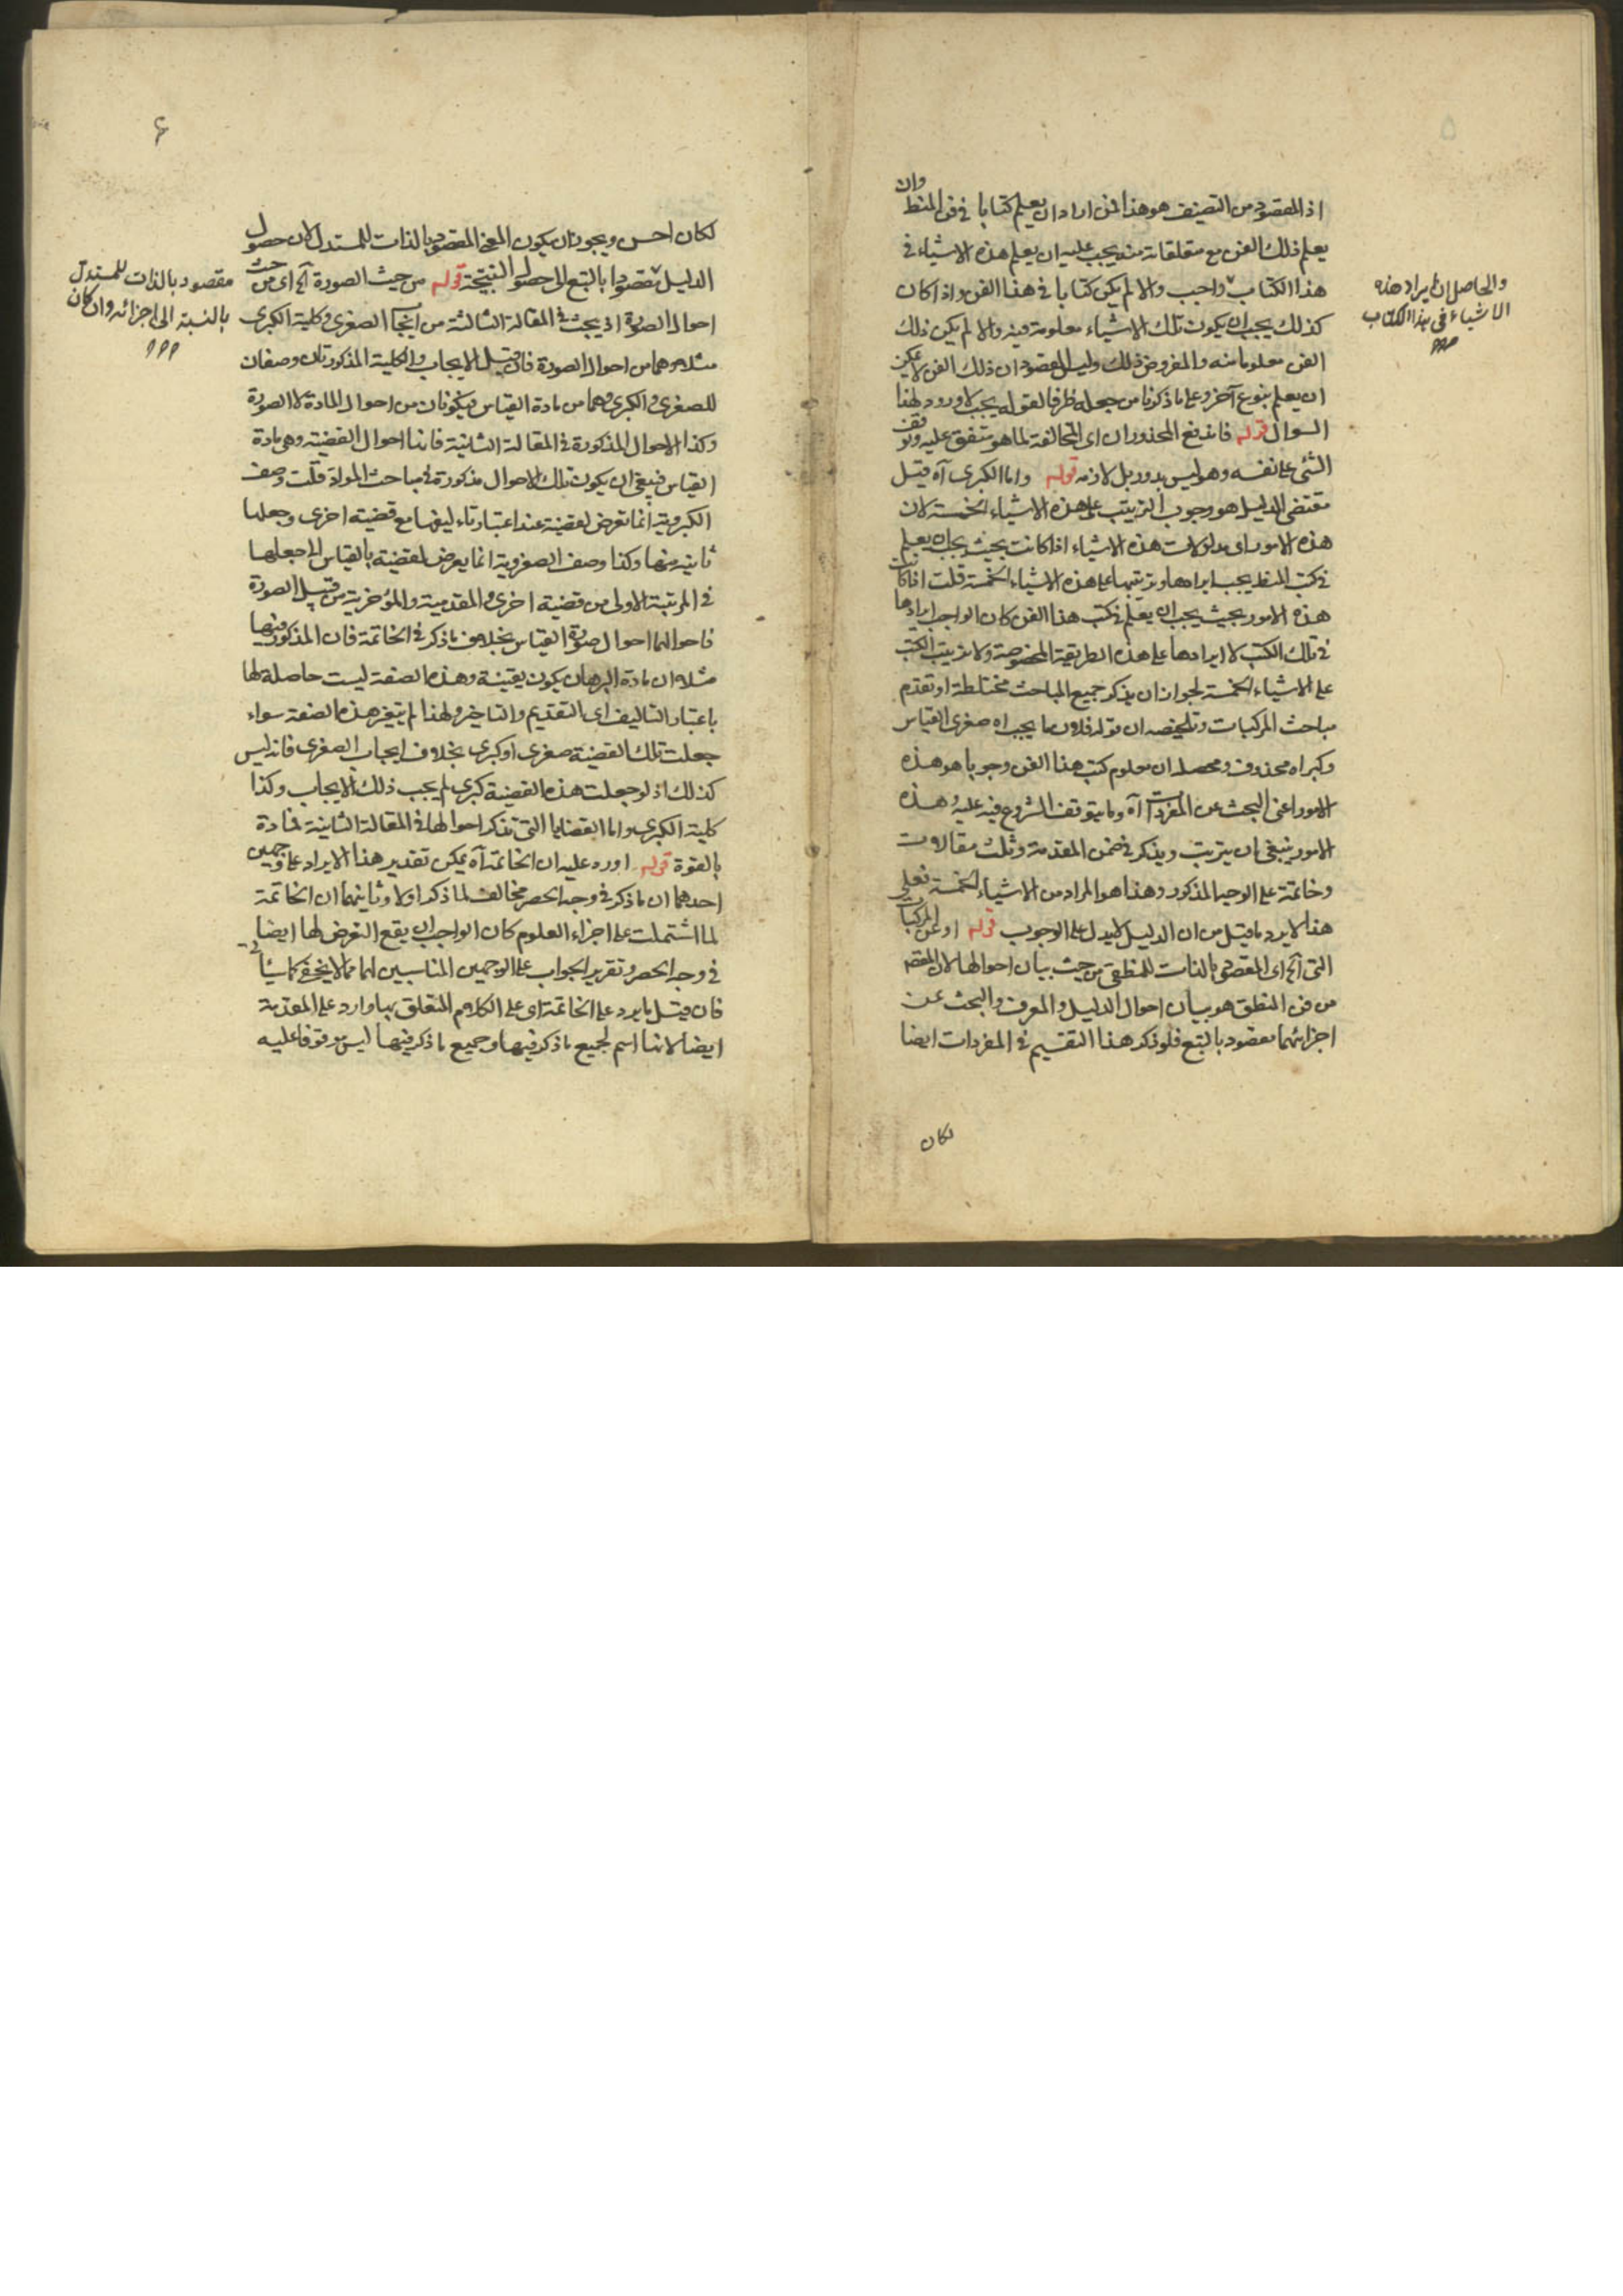 ۵
اذ المقصود من التصنيف هو هذا فمن اراد ان يعلم كتابا فى فن المنطق وان
يعلم ذلك الفن مع متعلقاته منه يجب عليه ان يعلم هذه الاشياء فى
هذا الكتاب واجب والا لم يكن كتابا فى هذا الفن واذا كان
كذلك يجب ان يكون تلك الاشياء معلومة فيه والا لم يكن ذلك
الفن معلوما منه والمفروض ذلك وليس المقصود ان ذلك الفن لا يمكن
ان يعلم بنوع آخر وعلى ما ذكرنا من جعله ظرفا لقوله يجب لا ورود لهذا
السوال قوله فاندفع المحذوران اى المخالفة لما هو متفق عليه وتوقف
الشئ على نفسه وهو ليس بدور بل لازمه قوله واما الكبرى آه قيل
مقتضى الدليل هو وجوب الترتيب على هذه الاشياء الخمسة لان
هذه الامور اى مدلولات هذه الاشياء اذا كانت بحيث يجب ان يعلم
فى كتب المنطق يجب ايرادها وترتيبها على هذه الاشياء الخمسة قلت اذا كانت
هذه الامور بحيث يجب ان يعلم فى كتب هذا الفن كان الواجب ايرادها
فى تلك الكتب لا ايرادها على هذه الطريقة المخصوصة ولا ترتيب الكتب
على الاشياء الخمسة لجواز ان يذكر جميع المباحث مختلطة او تقدم
مباحث المركبات وتلخيصه ان قوله فلان ما يجب اه صغرى القياس
وكبراه محذوف ومحصله ان معلوم كتب هذا الفن وجوبا هو هذه
الامور اعنى البحث عن المفردات آه وما يتوقف الشروع فيه عليه وهذه
الامور ينبغى ان يترتب ويذكر فى ضمن المقدمة وثلث مقالات
وخاتمة على الوجه المذكور وهذا هو المراد من الاشياء الخمسة فعلى
هذا لا يرد ما قيل من ان الدليل لا يدل على الوجوب قوله او عن المركبات
التى آلخ اى المقصود بالذات للمنطقى من حيث بيان احوالها لان المقصد
من فن المنطق هو بيان احوال الدليل والمعرف والبحث عن
اجزائهما مقصود بالتبع فلو ذكر هذا التقسيم فى المفردات ايضا
لكان
والحاصل ان ايراد هذه
الاشياء فى هذا الكتاب
۶
لكان احسن ويجوز ان يكون المعنى المقصود بالذات للمستدل لان حصول
الدليل مقصود بالتبع الى حصول النتيجة قوله من حيث الصورة آلخ اى من حيث
احوال الصورة اذ يبحث فى المقالة الثالثة من ايجاب الصغرى وكلية الكبرى
مثلا وهما من احوال الصورة فان قيل الايجاب والكلية المذكورتان وصفان
للصغرى والكبرى وهما من مادة القياس فيكونان من احوال المادة لا الصورة
وكذا الاحوال المذكورة فى المقالة الثانية فانها احوال القضية وهى مادة
القياس فينبغى ان يكون تلك الاحوال مذكورة فى مباحث المواد قلت وصف
الكبروية انما تعرض لقضية عند اعتبار تاءليفها مع قضية اخرى وجعلها
ثانية منها وكذا وصف الصغروية انما يعرض لقضية بالقياس الى جعلها
فى المرتبة الاولى من قضية اخرى والمقدمية والمؤخرية من قبيل الصورة
فاحوالهما احوال صورة القياس بخلاف ما ذكر فى الخاتمة فان المذكور فيها
مثلا ان مادة البرهان يكون يقينية وهذه الصفة ليست حاصلة لها
باعتبار التاليف اى التقديم والتاخير ولهذا لم يتغير هذه الصفة سواء
جعلت تلك القضية صغرى او كبرى بخلاف ايجاب الصغرى فانه ليس
كذلك اذ لو جعلت هذه القضية كبرى لم يجب ذلك الايجاب وكذا
كلية الكبرى واما القضايا التى تذكر احوالها فى المقالة الثانية فمادة
بالقوة قوله اورد عليه ان الخاتمة آه يمكن تقدير هذا الايراد على وجهين
احدهما ان ما ذكر فى وجه الحصر مخالف لما ذكر اولا وثانيهما ان الخاتمة
لما اشتملت على اجزاء العلوم كان الواجب ان يقع التعرض لها ايضا
فى وجه الحصر وتقرير الجواب على الوجهين المناسبين لهما مما لا يخفى
فان قيل ما يرد على الخاتمة اى على الكلام المتعلق بها وارد على المقدمة
ايضا لانها اسم لجميع ما ذكر فيها وجميع ما ذكر فيها ليس موقوفا عليه
مقصود بالذات للمستدل
بالنسبة الى اجزائه وان كان